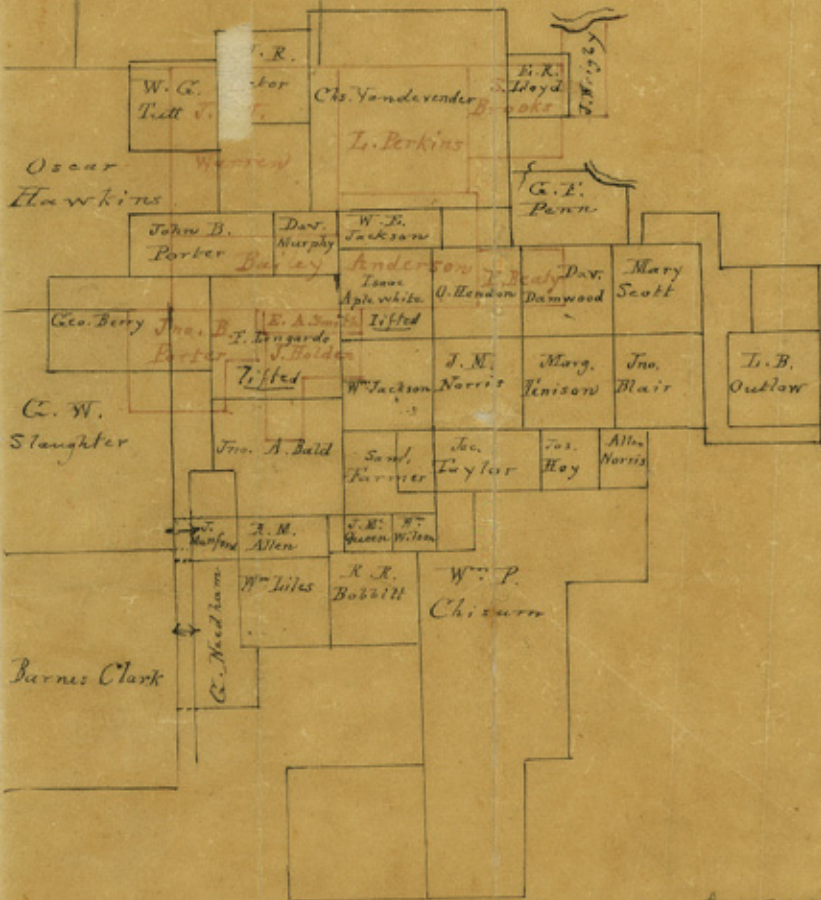 J. R.
W. G.
Tutt
Chs. Vandevender
E. R.
Lloyd
S.
Brooks
L. Perkins
Warren
Oscar
Hawkins
G. F.
Penn
John B.
Porter
Dav.
Murphy
W. E.
Jackson
Bailey Anderson
Isaac
Aplewhite
lifted
O. Hendon
T. Beaty
Dav.
Damwood
Mary
Scott
Geo. Berry
Jno. B.
Porter
E. A. Smith
F. Longardo
J. Holden
lifted
Wm Jackson
J. M.
Norris
Marg.
Tenison
Jno.
Blair
L. B.
Outlaw
G. W.
Slaughter
Jno. A. Bald
Sand.
Farmer
Joe.
Taylor
Jos.
Hoy
Allen
Norris
J.
Mumford
R. M.
Allen
J. Mc
Queen
Wm
Wilson
Wm Liles
R. R.
Bobbitt
Wm P.
Chisum
G. Needham
Barnes Clark